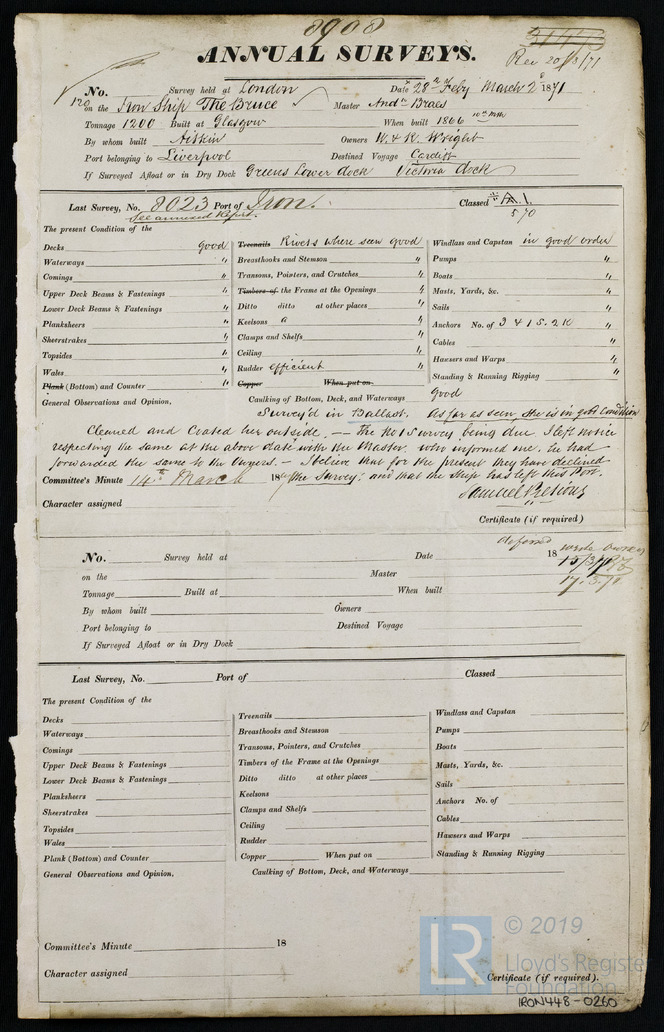 8908
ANNUAL SURVEYS.
Rec 20/3/71
No. Survey held at London Date 28th Feby March 2d 1871
120 on the Iron Ship The Bruce Master Andw Braes
Tonnage 1200 Built at Glasgow When built 1866 10th Mth
By whom built Aitkin Owners W. & R. Wright
Port belonging to Liverpool Destined Voyage Cardiff
If Surveyed Afloat or in Dry Dock Greens Lower dock Victoria dock
Last Survey, No. 8023 Port of Iron. Classed A.1.
See annexed Report. 5.70
The present Condition of the
Decks good
Waterways "
Comings "
Upper Deck Beams & Fastenings "
Lower Deck Beams & Fastenings "
Planksheers "
Sheerstrakes "
Topsides "
Wales "
Plank (Bottom) and Counter "
General Observations and Opinion,
Treenails Rivets where seen good
Breasthooks and Stemson "
Transoms, Pointers, and Crutches "
Timbers of the Frame at the Openings "
Ditto ditto at other places "
Keelsons "
Clamps and Shelfs "
Ceiling "
Rudder efficient "
Copper When put on
Caulking of Bottom, Deck, and Waterways good
Windlass and Capstan in good order
Pumps "
Boats "
Masts, Yards, &c. "
Sails "
Anchors No. of 3 & 1 S. 2 K "
Cables "
Hawsers and Warps "
Standing & Running Rigging "
Survey'd in Ballast. As far as seen, she is in good Condition
Cleaned and Coated her outside. — The No 1 Survey being due I left notice
respecting the same at the above date with the Master who informed me, he had
forwarded the same to the Owners. — I believe that for the present they have declined
Committee's Minute 14th March 18 the Survey; and that the Ship has left this Port.
Samuel Pretious
Character assigned
Certificate (if required)
deferred
wrote Owners
15/3/71
17.3.71
No. Survey held at Date 18
on the Master
Tonnage Built at When built
By whom built Owners
Port belonging to Destined Voyage
If Surveyed Afloat or in Dry Dock
Last Survey, No. Port of Classed
The present Condition of the
Decks
Waterways
Comings
Upper Deck Beams & Fastenings
Lower Deck Beams & Fastenings
Planksheers
Sheerstrakes
Topsides
Wales
Plank (Bottom) and Counter
General Observations and Opinion,
Treenails
Breasthooks and Stemson
Transoms, Pointers, and Crutches
Timbers of the Frame at the Openings
Ditto ditto at other places
Keelsons
Clamps and Shelfs
Ceiling
Rudder
Copper When put on
Caulking of Bottom, Deck, and Waterways
Windlass and Capstan
Pumps
Boats
Masts, Yards, &c.
Sails
Anchors No. of
Cables
Hawsers and Warps
Standing & Running Rigging
Committee's Minute 18
Character assigned
Certificate (if required).
LR © 2019
Lloyd's Register
Foundation
IRON448-0260